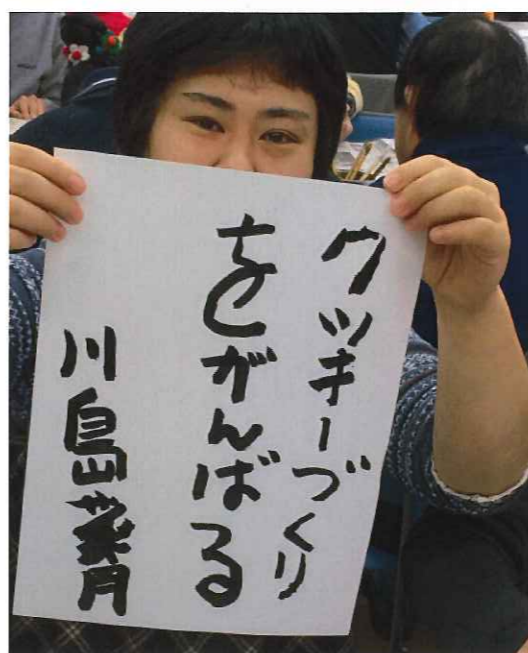 クッキーづくり
をがんばる
川島